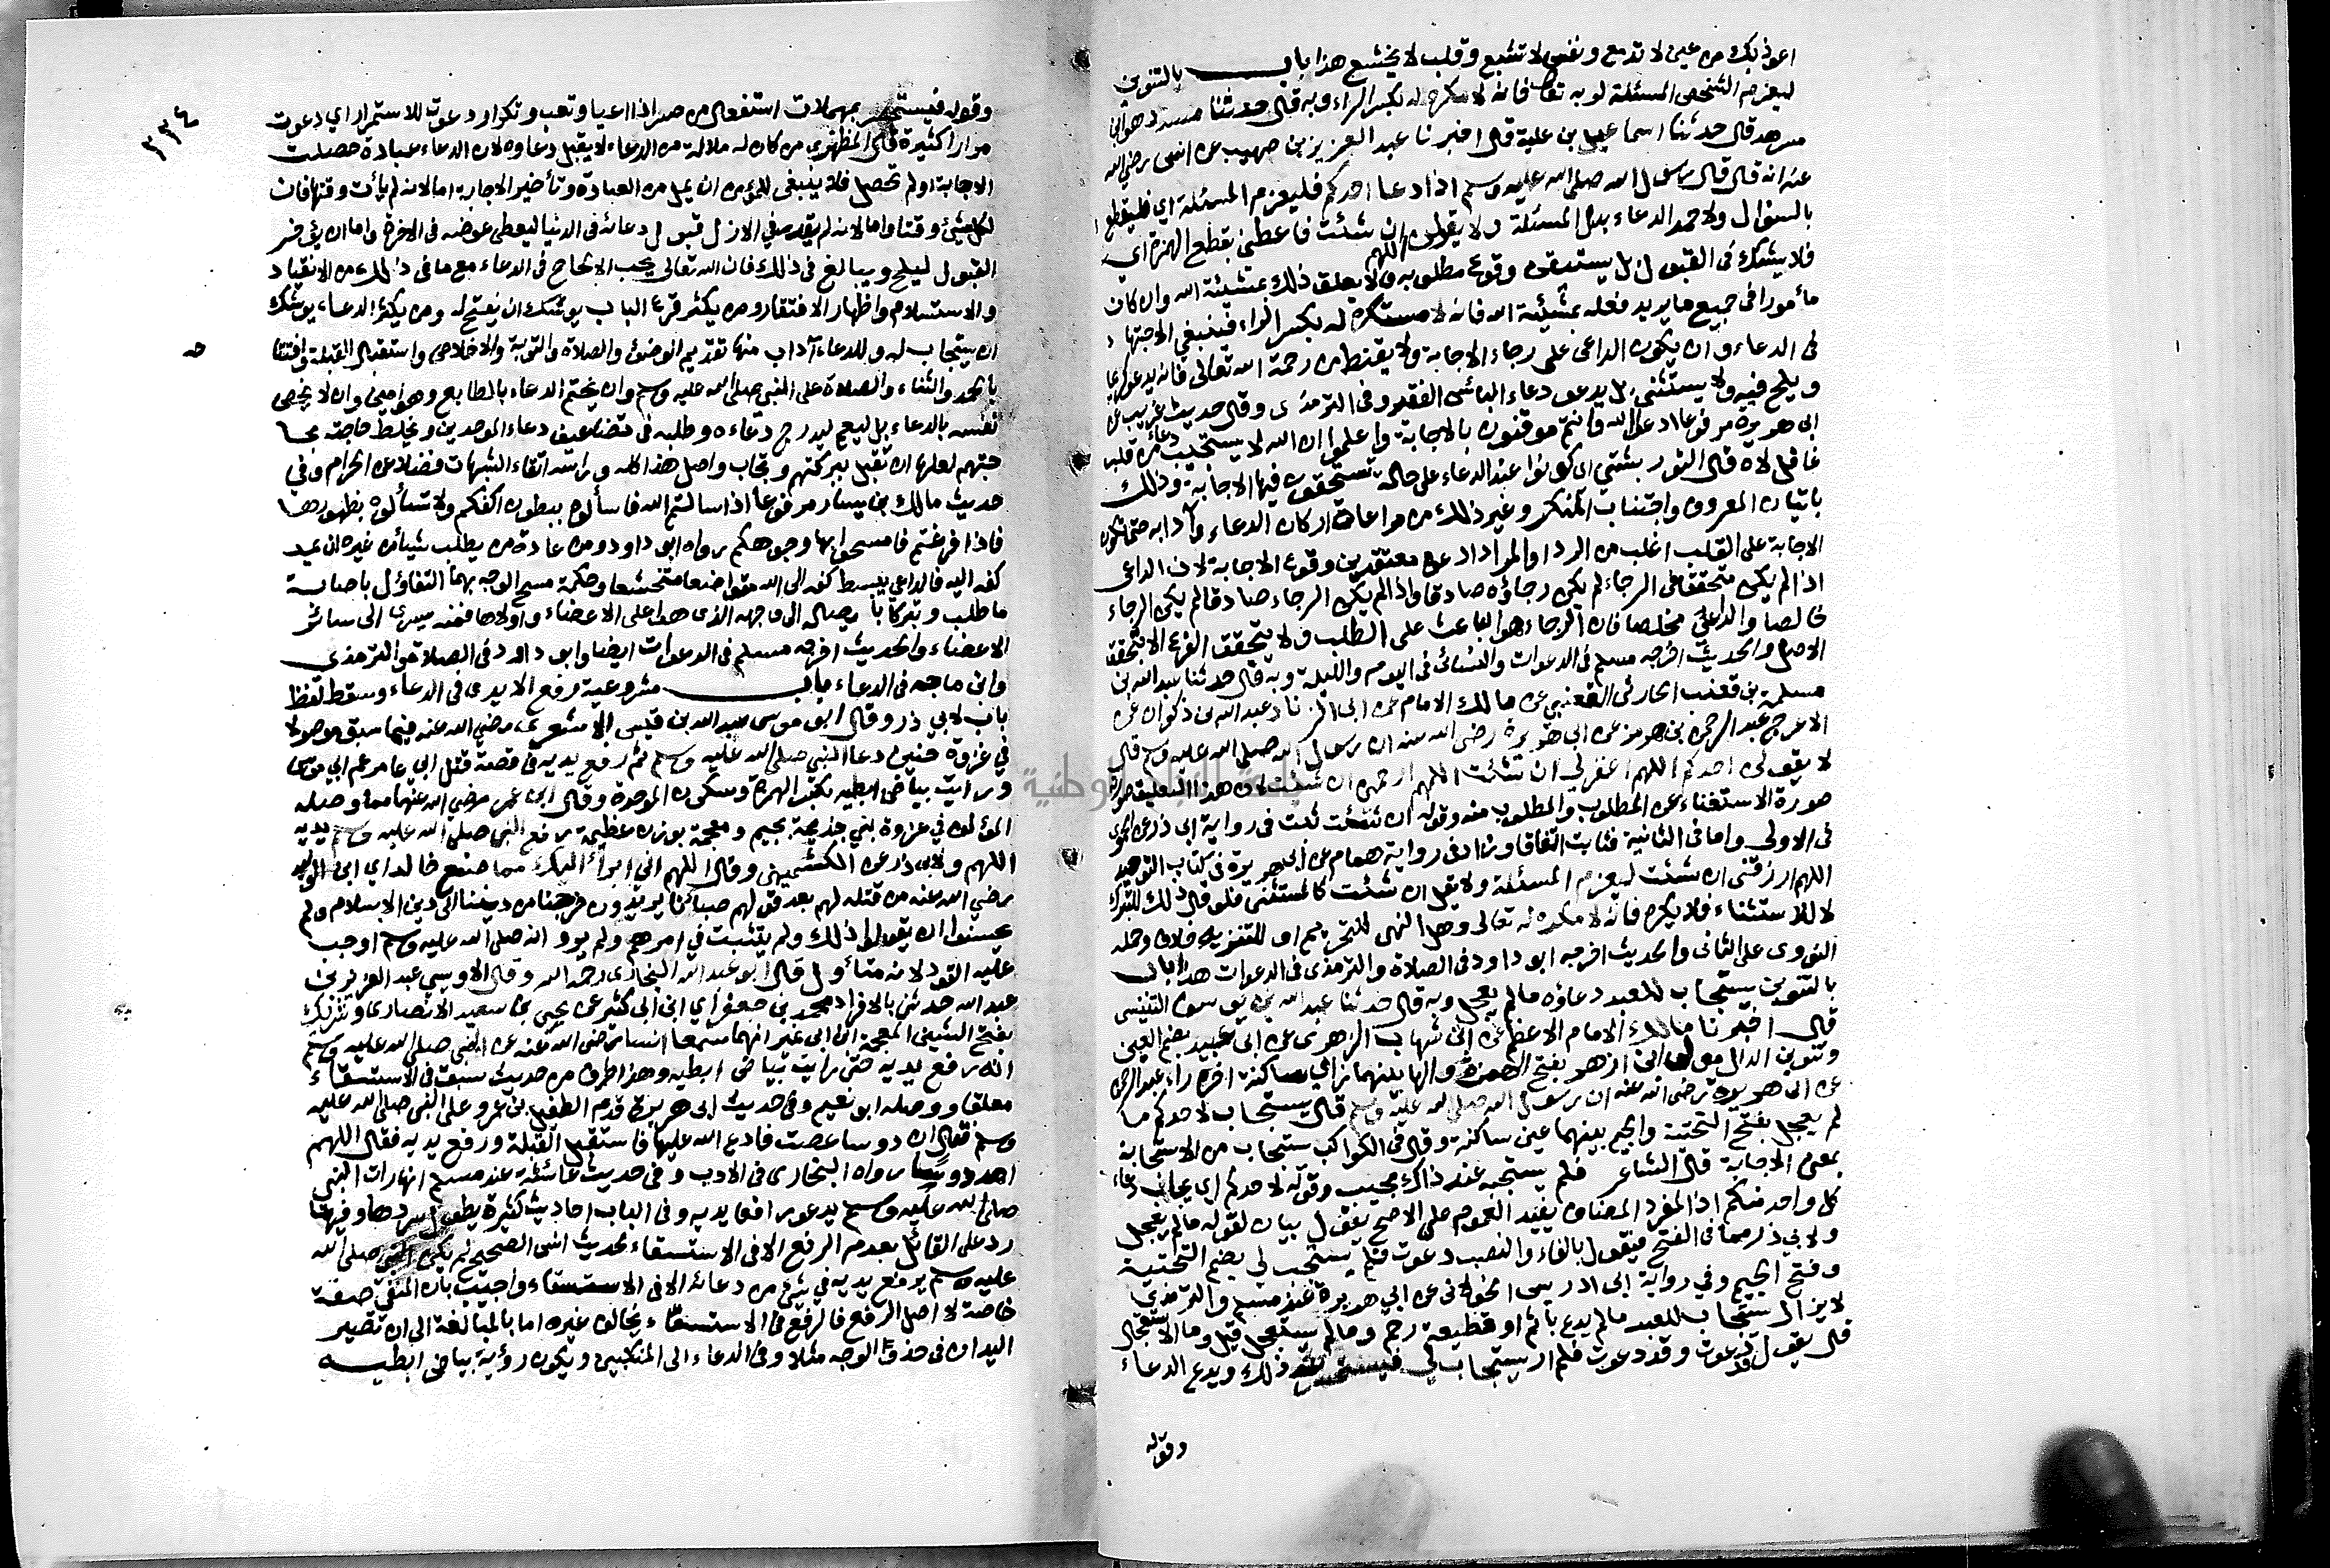 اعوذ بك من عين لا تدمع ونفس لا تشبع وقلب لا يخشع هذا باب بالتنوين
ليعزم الشخص المسئلة لربه تعالى فانه لا مكره له بكسر الراء وبه قال حدثنا مسدد هو ابن
مسرهد قال حدثنا اسماعيل بن علية قال اخبرنا عبد العزيز بن صهيب عن انس رضي الله
عنه انه قال قال رسول الله صلى الله عليه وسلم اذا دعا احدكم فليعزم المسئلة اي فليقطع
بالسؤال ولاحمد الدعاء بدل المسئلة ولا يقولن اللهم ان شئت فاعطني بقطع الهمزة اي
فلا يشك في القبول بل يستيقن وقوع مطلوبه ولا يعلق ذلك بمشيئة الله وان كان
مأمورا في جميع ما يريد فعله بمشيئة الله فانه لا مستكره له بكسر الراء فينبغي الاجتهاد
في الدعاء وان يكون الداعي على رجاء الاجابة ولا يقنط من رحمة الله تعالى فانه يدعو كريما
ويلح فيه ولا يستثني بل يدعو دعاء البائس الفقير وفي الترمذي وقال حديث غريب عن
ابي هريرة مرفوعا ادعوا الله وانتم موقنون بالاجابة واعلموا ان الله لا يستجيب دعاء من قلب
غافل لاه قال التوربشتي اي كونوا عند الدعاء على حالة تستحقون فيها الاجابة وذلك
باتيان المعروف واجتناب المنكر وغير ذلك من مراعاة اركان الدعاء وآدابه حتى تكون
الاجابة على القلب اغلب من الرد او المراد ادعوه معتقدين وقوع الاجابة لان الداعي
اذا لم يكن متحققا في الرجاء لم يكن رجاؤه صادقا واذا لم يكن الرجاء صادقا لم يكن الرجاء
خالصا والداعي مخلصا فان الرجاء هو الباعث على الطلب ولا يتحقق الفرع الا بتحقق
الاصل والحديث اخرجه مسلم في الدعوات والنسائي في اليوم والليلة وبه قال حدثنا عبد الله بن
مسلمة بن قعنب الحارثي القعنبي عن مالك الامام عن ابي الزناد عبد الله بن ذكوان عن
الاعرج عبد الرحمن بن هرمز عن ابي هريرة رضي الله عنه ان رسول الله صلى الله عليه وسلم قال
لا يقولن احدكم اللهم اغفر لي ان شئت اللهم ارحمني ان شئت لان هذا التعليق صورته
صورة الاستغناء عن المطلوب والمطلوب منه وقوله ان شئت ثبت في رواية ابي ذر عن الحموي
في الاولى واما في الثانية فثابت اتفاقا وزاد في رواية همام عن ابي هريرة في كتاب التوحيد
اللهم ارزقني ان شئت ليعزم المسئلة ولا يقل ان شئت كالمستثني فلو قال ذلك للتبرك
لا للاستثناء فلا يكره فانه لا مكره له تعالى وهل النهي للتحريم او للتنزيه خلاف وحمله
النووي على الثاني والحديث اخرجه ابو داود في الصلاة والترمذي في الدعوات هذا باب
بالتنوين يستجاب للعبد دعاؤه ما لم يعجل وبه قال حدثنا عبد الله بن يوسف التنيسي
قال اخبرنا مالك الامام الاعظم عن ابن شهاب الزهري عن ابي عبيد بضم العين
وتنوين الدال مولى ابن ازهر بفتح الهمزة والهاء بينهما زاي ساكنة اخره راء عبد الرحمن
عن ابي هريرة رضي الله عنه ان رسول الله صلى الله عليه وسلم قال يستجاب لاحدكم ما
لم يعجل بفتح التحتية والجيم بينهما عين ساكنة وقال في الكواكب يستجاب من الاستجابة
بمعنى الاجابة قال الشاعر فلم يستجبه عند ذاك مجيب وقوله لاحدكم اي يجاب دعاء
كل واحد منكم اذ المفرد المضاف يفيد العموم على الاصح يقول بيان لقوله ما لم يعجل
ولابي ذر مما في الفتح فيقول بالفاء والنصب دعوت فلم يستجب لي بضم التحتية
وفتح الجيم وفي رواية ابي ادريس الخولاني عن ابي هريرة عند مسلم والترمذي
لا يزال يستجاب للعبد ما لم يدع باثم او قطيعة رحم وما لم يستعجل قيل وما الاستعجال
قال يقول قد دعوت وقد دعوت فلم ار يستجاب لي فيستحسر عند ذلك ويدع الدعاء
وقوله
٣٣٤
وقوله فيستحسر بمهملات استفعال من حسر اذا اعيا وتعب وتكرار دعوت للاستمرار اي دعوت
مرارا كثيرة قال المظهري من كان له ملالة من الدعاء لا يقبل دعاؤه لان الدعاء عبادة حصلت
الاجابة او لم تحصل فلا ينبغي للمؤمن ان يمل من العبادة وتأخير الاجابة اما لانه لم يأت وقتها فان
لكل شيئ وقتا واما لانه لم يقدر في الازل قبول دعائه في الدنيا ليعطى عوضه في الاخرة واما ان يؤخر
القبول ليلح ويبالغ في ذلك فان الله تعالى يحب الالحاح في الدعاء مع ما في ذلك من الانقياد
والاستسلام واظهار الافتقار ومن يكثر قرع الباب يوشك ان يفتح له ومن يكثر الدعاء يوشك
ان يستجاب له وللدعاء آداب منها تقديم الوضوء والصلاة والتوبة والاخلاص واستقبال القبلة وافتتاحه
بالحمد والثناء والصلاة على النبي صلى الله عليه وسلم وان يختم الدعاء بالطابع وهو امين وان لا يخص
نفسه بالدعاء بل ليعم ليدرج دعاءه وطلبه في تضاعيف دعاء الموحدين ويخلط حاجته بحا
جتهم لعلها ان تقبل ببركتهم وتجاب واصل هذا كله وراسه اتقاء الشبهات فضلا عن الحرام وفي
حديث مالك بن يسار مرفوعا اذا سالتم الله فاسألوه ببطون اكفكم ولا تسألوه بظهورها
فاذا فرغتم فامسحوا بها وجوهكم رواه ابو داود ومن عادة من يطلب شيئا من غيره ان يمد
كفه اليه فالداعي يبسط كفه الى الله متواضعا متخشعا وحكمة مسح الوجه بهما التفاؤل باصابة
ما طلب وتبركا بايصاله الى وجهه الذي هو اعلى الاعضاء واولاها فمنه يسري الى سائر
الاعضاء والحديث اخرجه مسلم في الدعوات ايضا وابو داود في الصلاة والترمذي
وابن ماجه في الدعاء باب مشروعية رفع الايدي في الدعاء وسقط لفظ
باب لابي ذر وقال ابو موسى عبد الله بن قيس الاشعري رضي الله عنه فيما سبق موصولا
في غزوة حنين دعا النبي صلى الله عليه وسلم ثم رفع يديه في قصة قتل ابي عامر عم ابي موسى
ورايت بياض ابطيه بكسر الهمزة وسكون الموحدة وقال ابن عمر رضي الله عنهما مما وصله
المؤلف في غزوة بني جذيمة بجيم ومعجمة بوزن عظيمة رفع النبي صلى الله عليه وسلم يديه
اللهم ولابي ذر عن الكشميهني وقال اللهم اني ابرأ اليك مما صنع خالد اي ابن الوليد
رضي الله عنه من قتله لهم بعد قولهم صبأنا يريدون خرجنا من ديننا الى دين الاسلام ولم
يحسنوا ان يقولوا ذلك ولم يتثبت في امرهم ولم يرو انه صلى الله عليه وسلم اوجب
عليه القود لانه متأول قال ابو عبد الله البخاري رحمه الله وقال الاويسي عبد العزيز بن
عبد الله حدثني بالافراد محمد بن جعفر اي ابن ابي كثير عن يحيى بن سعيد الانصاري وشريك
بفتح الشين المعجمة ابن ابي نمر انهما سمعا انسا رضي الله عنه عن النبي صلى الله عليه وسلم
انه رفع يديه حتى رايت بياض ابطيه وهذا طرف من حديث سبق في الاستسقاء
معلقا ووصله ابو نعيم وفي حديث ابي هريرة قدم الطفيل بن عمرو على النبي صلى الله عليه
وسلم فقال ان دوسا عصت فادع الله عليها فاستقبل القبلة ورفع يديه فقال اللهم
اهد دوسا رواه البخاري في الادب وفي حديث عائشة عند مسلم انها رات النبي
صلى الله عليه وسلم يدعو رافعا يديه وفي الباب احاديث كثيرة يطول سردها وفيها
رد على القائل بعدم الرفع الا في الاستسقاء لحديث انس الصحيح لم يكن النبي صلى الله
عليه وسلم يرفع يديه في شيئ من دعائه الا في الاستسقاء واجيب بان المنفي صفة
خاصة لا اصل الرفع فالرفع في الاستسقاء يخالف غيره اما بالمبالغة الى ان تصير
اليدان في حذو الوجه مثلا وفي الدعاء الى المنكبين ويكون رؤية بياض ابطيه